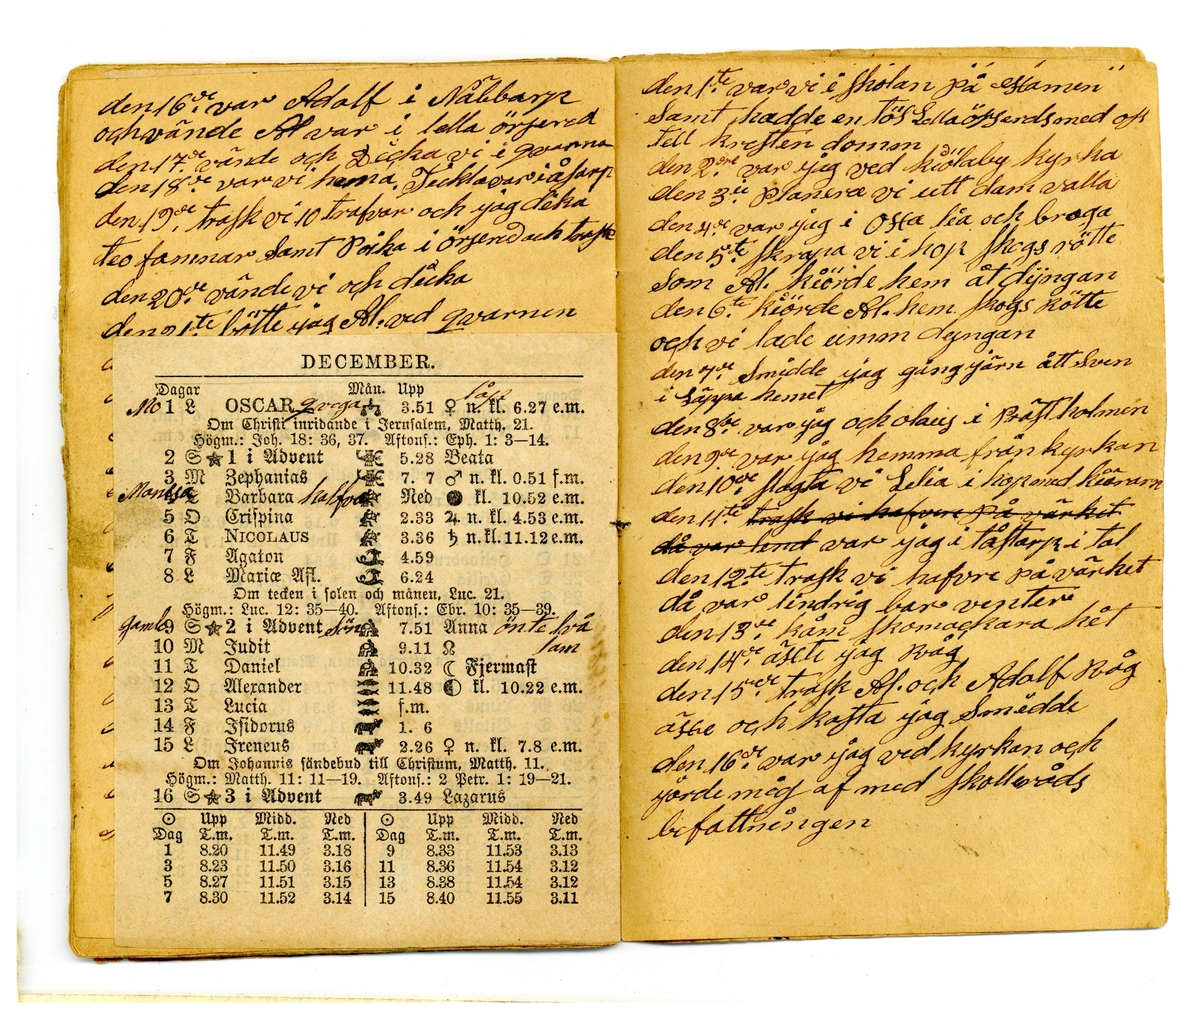 den 16de var Adolf i Näbbarp
och vände Al var i lella örsered
den 17de vände och däcka vi i qvarna
den 18de var vi hema, Tecklavar i åsarp
den 19de trask vi 10 trafvar och jag däka
teo famnar Samt Peika i örsered och trask
den 20de vände vi och däcka
den 21te bötte ijag Al. ved qvarnen
DECEMBER.
Dagar Mån. Upp
1 L OSCAR qvega 3.51 ♀ n. kl. 6.27 e.m.
Om Christi inridande i Jerusalem, Matth. 21.
Högm.: Joh. 18: 36, 37. Aftons.: Eph. 1: 3—14.
2 S 1 i Advent 5.28 Beata
3 M Zephanias 7. 7 ♂ n. kl. 0.51 f.m.
4 T Barbara halfva Ned kl. 10.52 e.m.
5 O Crispina 2.33 ♃ n. kl. 4.53 e.m.
6 T NICOLAUS 3.36 ♄ n. kl. 11.12 e.m.
7 F Agaton 4.59
8 L Mariæ Afl. 6.24
Om tecken i solen och månen, Luc. 21.
Högm.: Luc. 12: 35—40. Aftons.: Ebr. 10: 35—39.
gamle 9 S 2 i Advent 7.51 Anna önte två
10 M Judit 9.11 ☊ lam
11 T Daniel 10.32 ☾ Fjermast
12 O Alexander 11.48 kl. 10.22 e.m.
13 T Lucia f.m.
14 F Isidorus 1. 6
15 L Ireneus 2.26 ♀ n. kl. 7.8 e.m.
Om Johannis sändebud till Christum, Matth. 11.
Högm.: Matth. 11: 11—19. Aftons.: 2 Petr. 1: 19—21.
16 S 3 i Advent 3.49 Lazarus
☉ Upp Midd. Ned ☉ Upp Midd. Ned
Dag T.m. T.m. T.m. Dag T.m. T.m. T.m.
1 8.20 11.49 3.18 9 8.33 11.53 3.13
3 8.23 11.50 3.16 11 8.36 11.54 3.12
5 8.27 11.51 3.15 13 8.38 11.54 3.12
7 8.30 11.52 3.14 15 8.40 11.55 3.11
den 1te var vi i skolan på Hamen
Samt hadde en tös Lella össerds med oss
tell kresten domm
den 2dre var ijag ved kiölaby kyrka
den 3ie Planera vi utt dam valla
den 4de var ijag i Osta lia och broga
den 5te skrapa vi i hop skogs rötte
som Al. kiörde hem åt dijngan
den 6te kiörde Al. hem skogs rötte
och vi lade umm dyngan
den 7de Smidde ijag gång järn ått Sven
i Säppa hemet
den 8de var ijag och olaus i Prästholmen
den 9de var ijag hemma från kyrkan
den 10de slagta vi Lelia i hop med kiöraren
den 11te trask vi hafvre på värket
då var lind var ijag i tåstarp i tal
den 12te trask vi hafvre på värket
då var lindrig bar venter
den 13de käm skomackara hét
den 14de äste ijag Råg
den 15de trask Al. och Adolf Råg
äste och kasta ijag Smidde
den 16de var ijag ved kyrkan och
ijörde mig af med skolleråds
befattningen